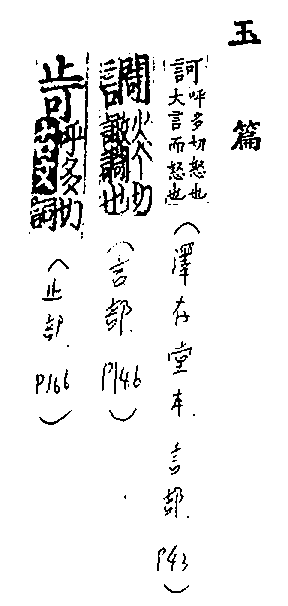 玉篇
訶 呼多切怒也大言而怒也 (澤存堂本.言部.P43)
(言部.P146)
呼多切 (止部.P166)